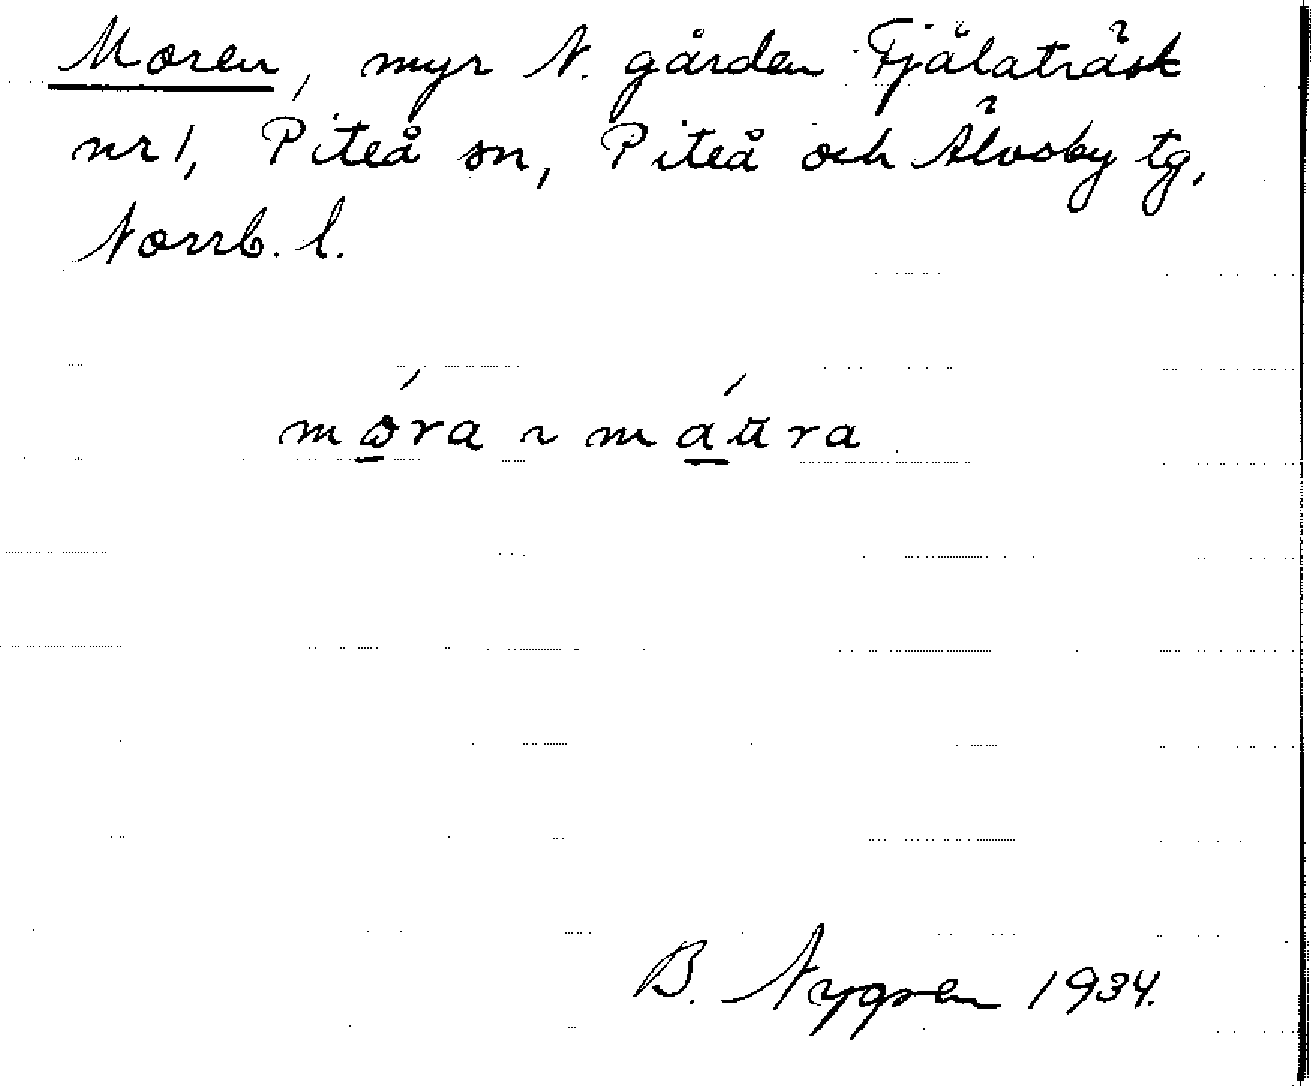 Moren, myr N. gården Fjälaträsk
nr 1, Piteå sn, Piteå och Älvsby tg,
Norrb. l.
mo̲ra ~ ma̲u̇ra
B. Nygren 1934.